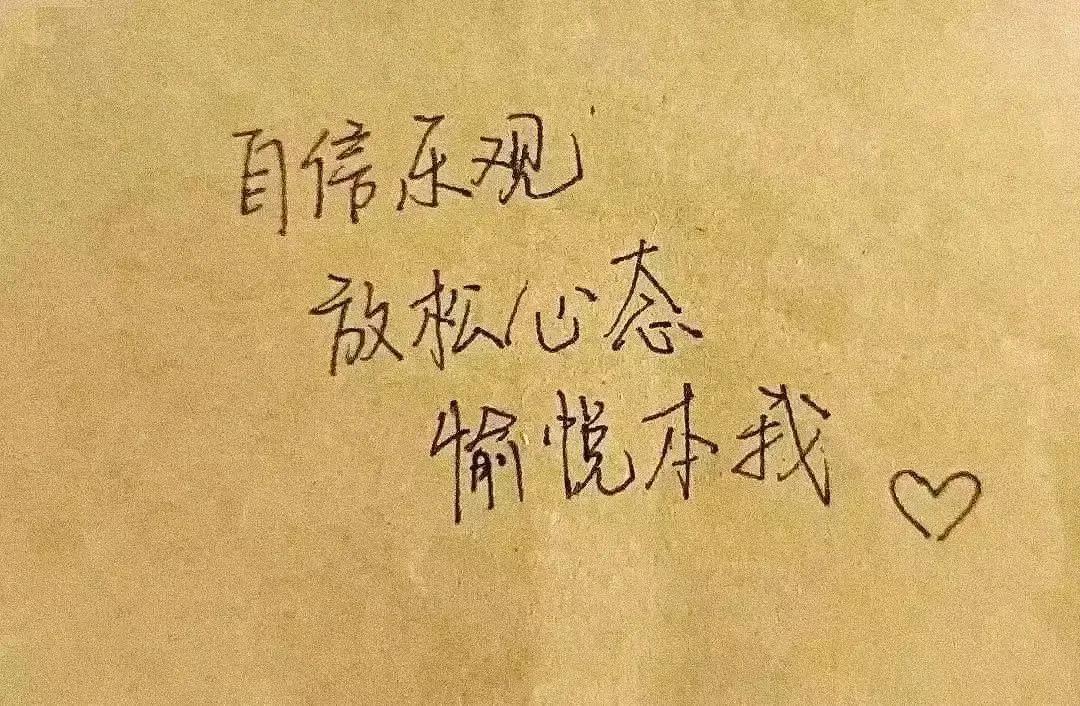 自信乐观
放松心态
愉悦本我